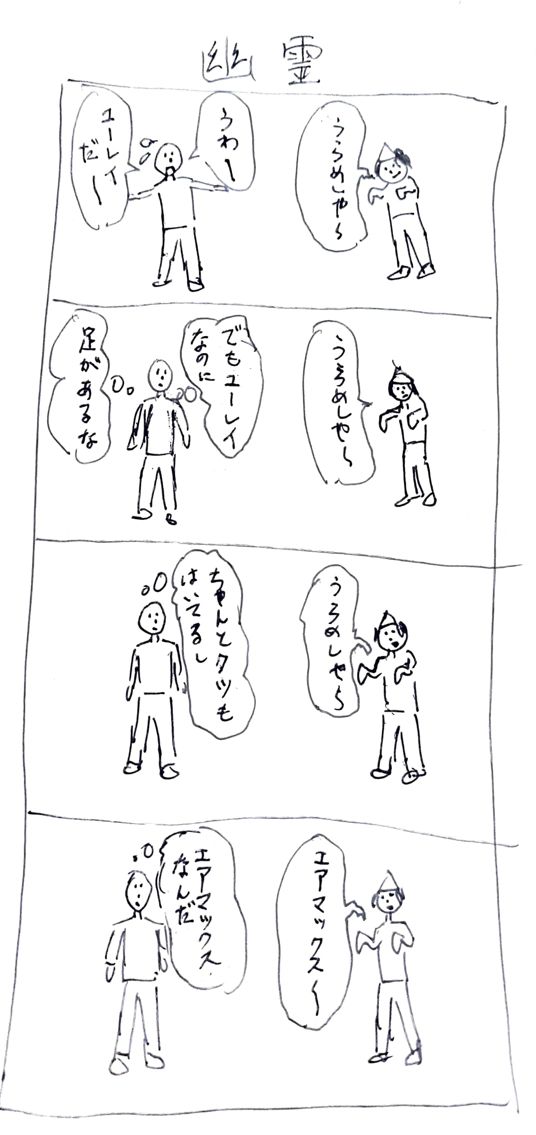 幽霊
うらめしや〜
うわー
ユーレイ
だ〜
うらめしや〜
でもユーレイ
なのに
足があるな
うらめしや〜
ちゃんとクツも
はいてるし
エアマックス〜
エアマックス
なんだ